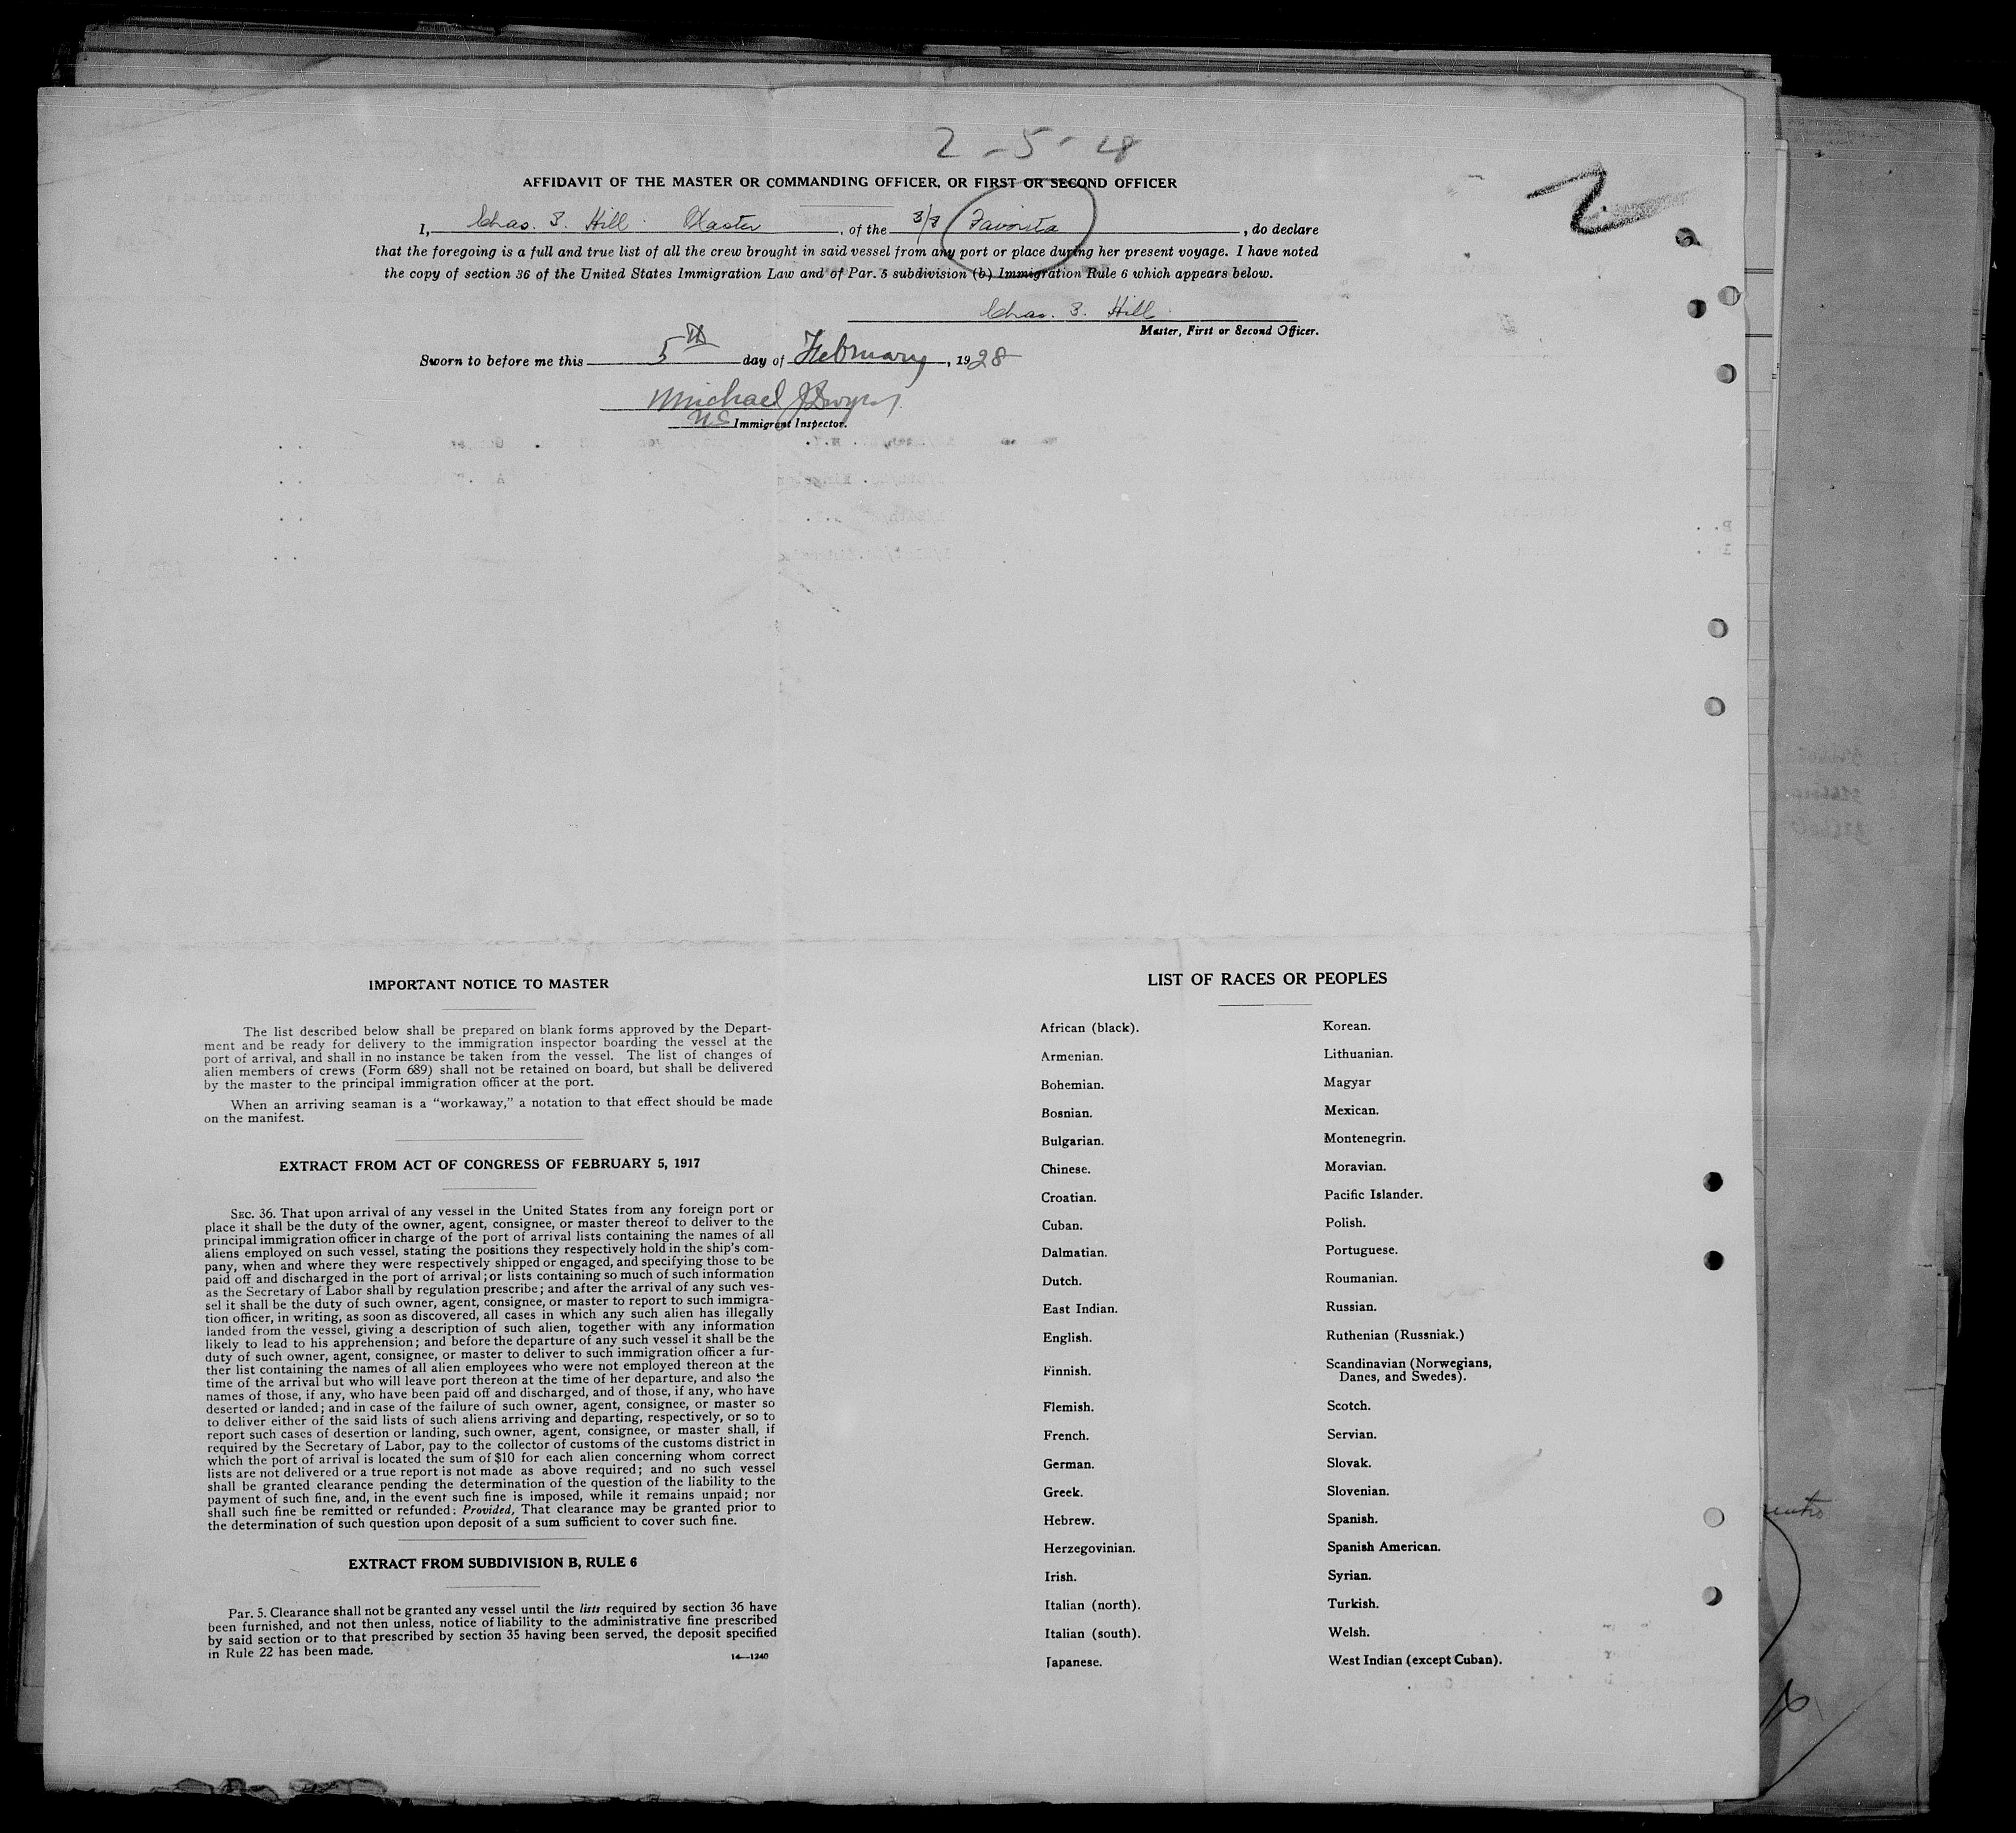 2-5-28
2
AFFIDAVIT OF THE MASTER OR COMMANDING OFFICER, OR FIRST OR SECOND OFFICER
I, Chas. S. Hill Master, of the S/S Favorita, do declare
that the foregoing is a full and true list of all the crew brought in said vessel from any port or place during her present voyage. I have noted
the copy of section 36 of the United States Immigration Law and of Par. 5 subdivision (b) Immigration Rule 6 which appears below.
Chas. S. Hill
Master, First or Second Officer.
Sworn to before me this 5th day of February, 1928
Michael J Dwyer
US Immigrant Inspector.
IMPORTANT NOTICE TO MASTER
The list described below shall be prepared on blank forms approved by the Depart-
ment and be ready for delivery to the immigration inspector boarding the vessel at the
port of arrival, and shall in no instance be taken from the vessel. The list of changes of
alien members of crews (Form 689) shall not be retained on board, but shall be delivered
by the master to the principal immigration officer at the port.
When an arriving seaman is a “workaway,” a notation to that effect should be made
on the manifest.
EXTRACT FROM ACT OF CONGRESS OF FEBRUARY 5, 1917
SEC. 36. That upon arrival of any vessel in the United States from any foreign port or
place it shall be the duty of the owner, agent, consignee, or master thereof to deliver to the
principal immigration officer in charge of the port of arrival lists containing the names of all
aliens employed on such vessel, stating the positions they respectively hold in the ship's com-
pany, when and where they were respectively shipped or engaged, and specifying those to be
paid off and discharged in the port of arrival; or lists containing so much of such information
as the Secretary of Labor shall by regulation prescribe; and after the arrival of any such ves-
sel it shall be the duty of such owner, agent, consignee, or master to report to such immigra-
tion officer, in writing, as soon as discovered, all cases in which any such alien has illegally
landed from the vessel, giving a description of such alien, together with any information
likely to lead to his apprehension; and before the departure of any such vessel it shall be the
duty of such owner, agent, consignee, or master to deliver to such immigration officer a fur-
ther list containing the names of all alien employees who were not employed thereon at the
time of the arrival but who will leave port thereon at the time of her departure, and also the
names of those, if any, who have been paid off and discharged, and of those, if any, who have
deserted or landed; and in case of the failure of such owner, agent, consignee, or master so
to deliver either of the said lists of such aliens arriving and departing, respectively, or so to
report such cases of desertion or landing, such owner, agent, consignee, or master shall, if
required by the Secretary of Labor, pay to the collector of customs of the customs district in
which the port of arrival is located the sum of $10 for each alien concerning whom correct
lists are not delivered or a true report is not made as above required; and no such vessel
shall be granted clearance pending the determination of the question of the liability to the
payment of such fine, and, in the event such fine is imposed, while it remains unpaid; nor
shall such fine be remitted or refunded: Provided, That clearance may be granted prior to
the determination of such question upon deposit of a sum sufficient to cover such fine.
EXTRACT FROM SUBDIVISION B, RULE 6
Par. 5. Clearance shall not be granted any vessel until the lists required by section 36 have
been furnished, and not then unless, notice of liability to the administrative fine prescribed
by said section or to that prescribed by section 35 having been served, the deposit specified
in Rule 22 has been made.
14—1240
LIST OF RACES OR PEOPLES
African (black).
Armenian.
Bohemian.
Bosnian.
Bulgarian.
Chinese.
Croatian.
Cuban.
Dalmatian.
Dutch.
East Indian.
English.
Finnish.
Flemish.
French.
German.
Greek.
Hebrew.
Herzegovinian.
Irish.
Italian (north).
Italian (south).
Japanese.
Korean.
Lithuanian.
Magyar
Mexican.
Montenegrin.
Moravian.
Pacific Islander.
Polish.
Portuguese.
Roumanian.
Russian.
Ruthenian (Russniak.)
Scandinavian (Norwegians,
Danes, and Swedes).
Scotch.
Servian.
Slovak.
Slovenian.
Spanish.
Spanish American.
Syrian.
Turkish.
Welsh.
West Indian (except Cuban).